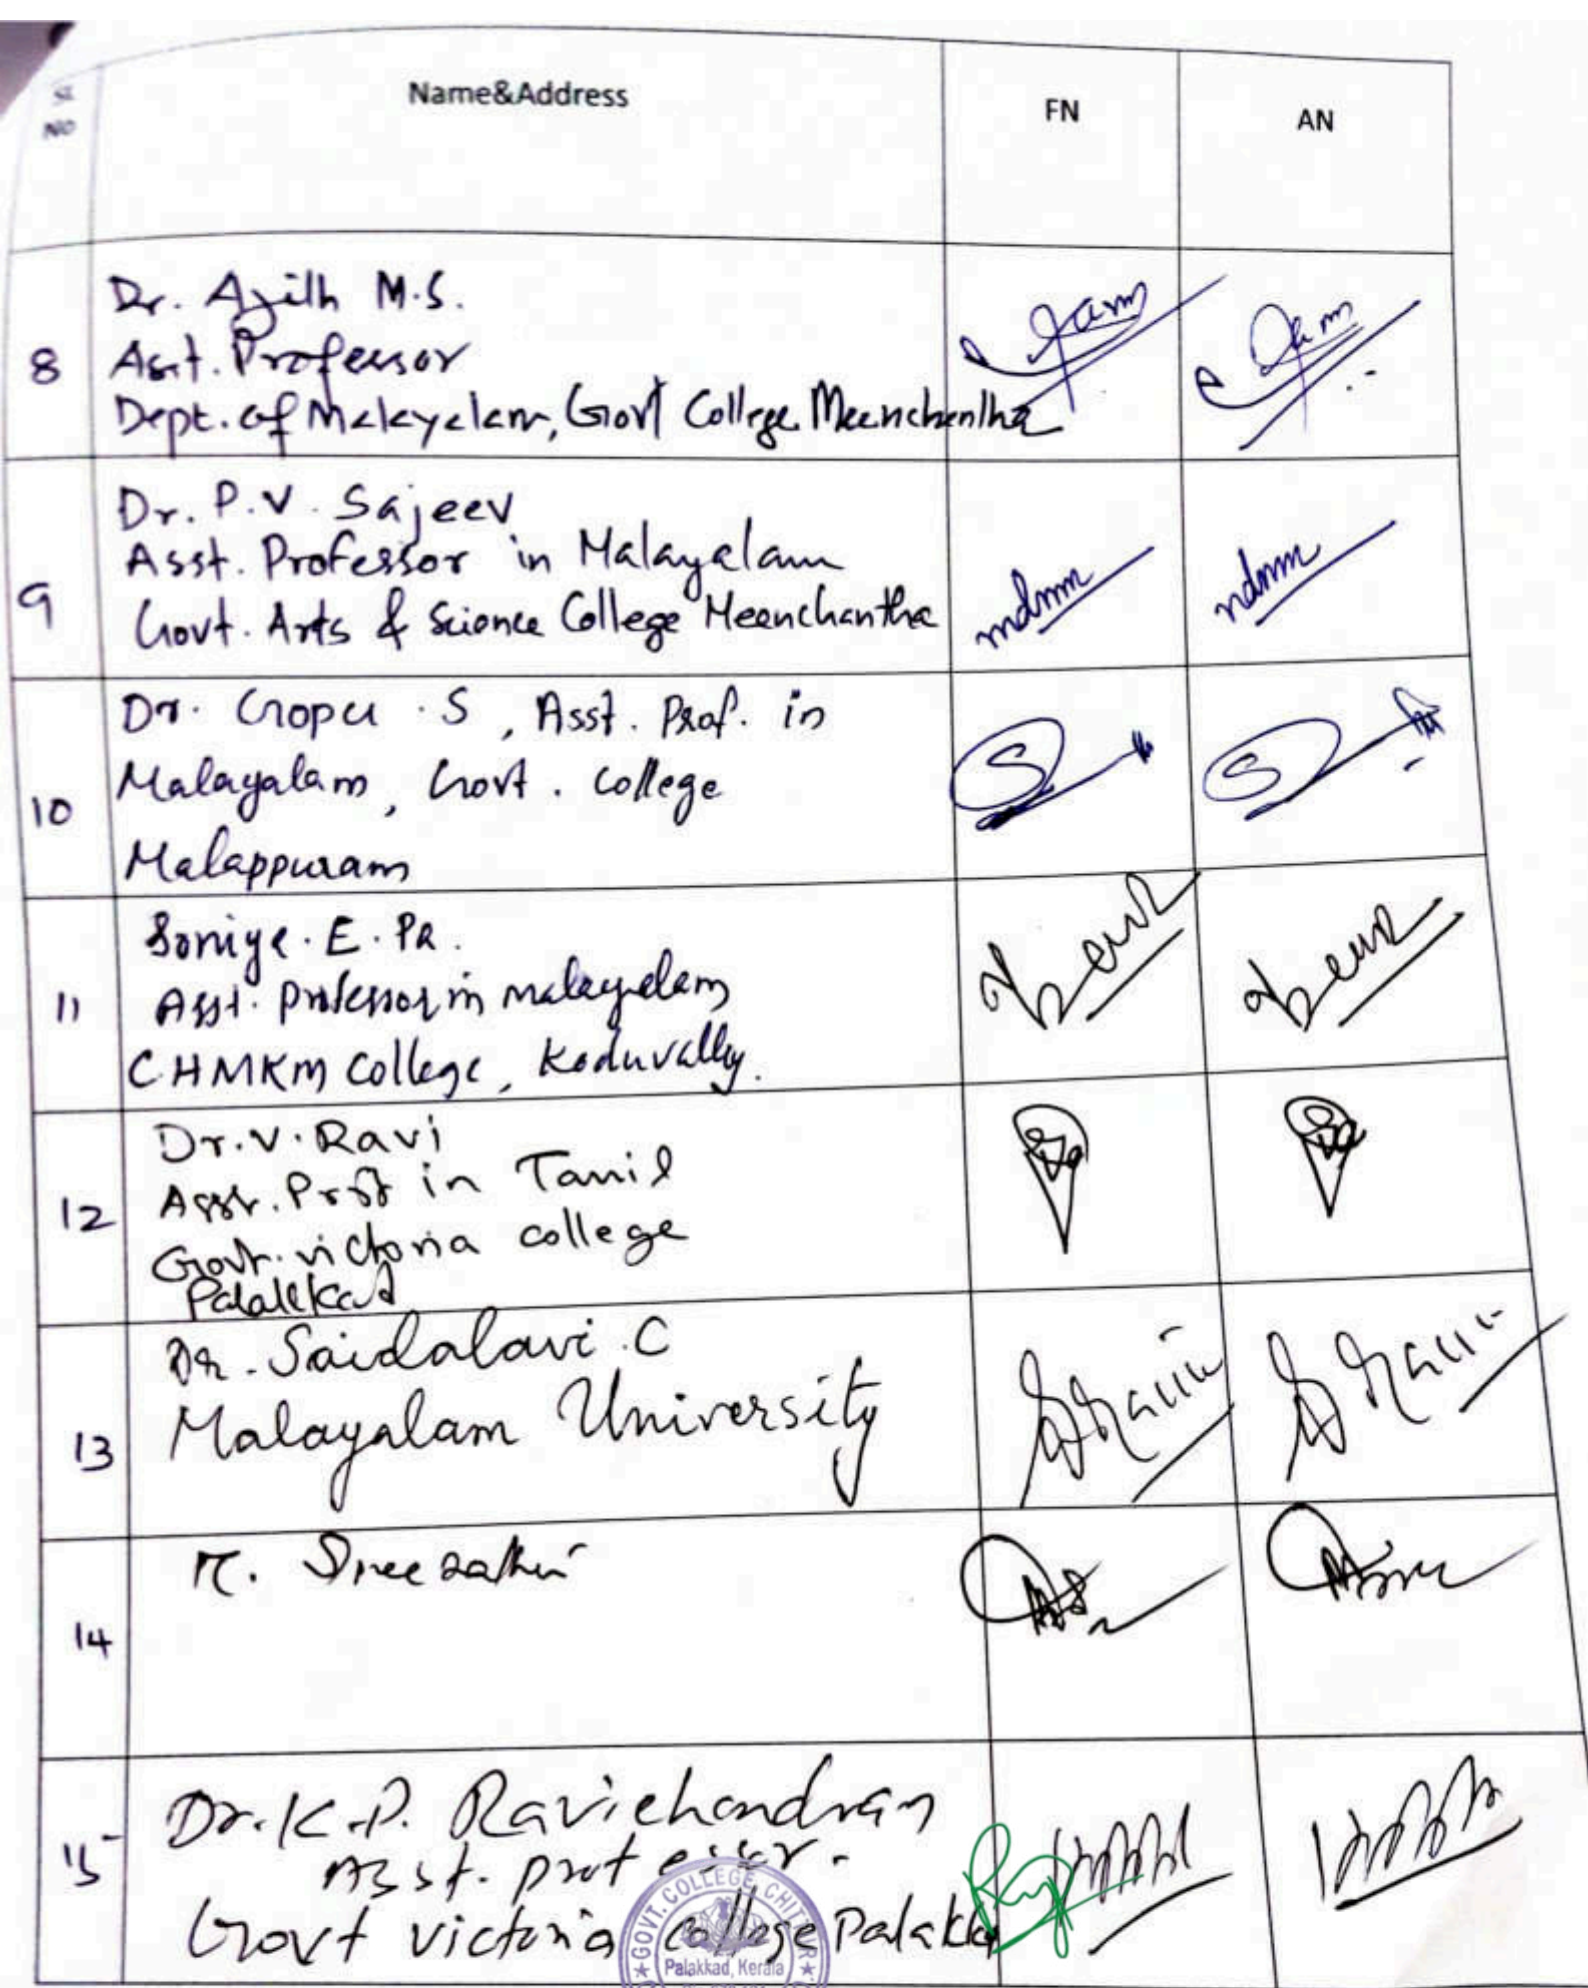 SL NO Name&Address FN AN
8
Dr. Ajith M.S.
Asst. Professor
Dept. of Malayalam, Govt College Meenchantha
9
Dr. P.V. Sajeev
Asst. Professor in Malayalam
Govt. Arts & Science College Meenchantha
10
Dr. Gopu . S , Asst. Prof. in
Malayalam, Govt. College
Malappuram
11
Soniya. E. Pa.
Asst. Professor in malayalam
CHMKM College, Koduvally.
12
Dr. V. Ravi
Asst. Prof in Tamil
Govt. victoria college
Palakkad
13
Dr. Saidalavi . C
Malayalam University
14
15
Dr. K.P. Ravichandran
Asst. professor.
Govt victoria college Palakkad
GOVT. COLLEGE, CHITTUR
Palakkad, Kerala